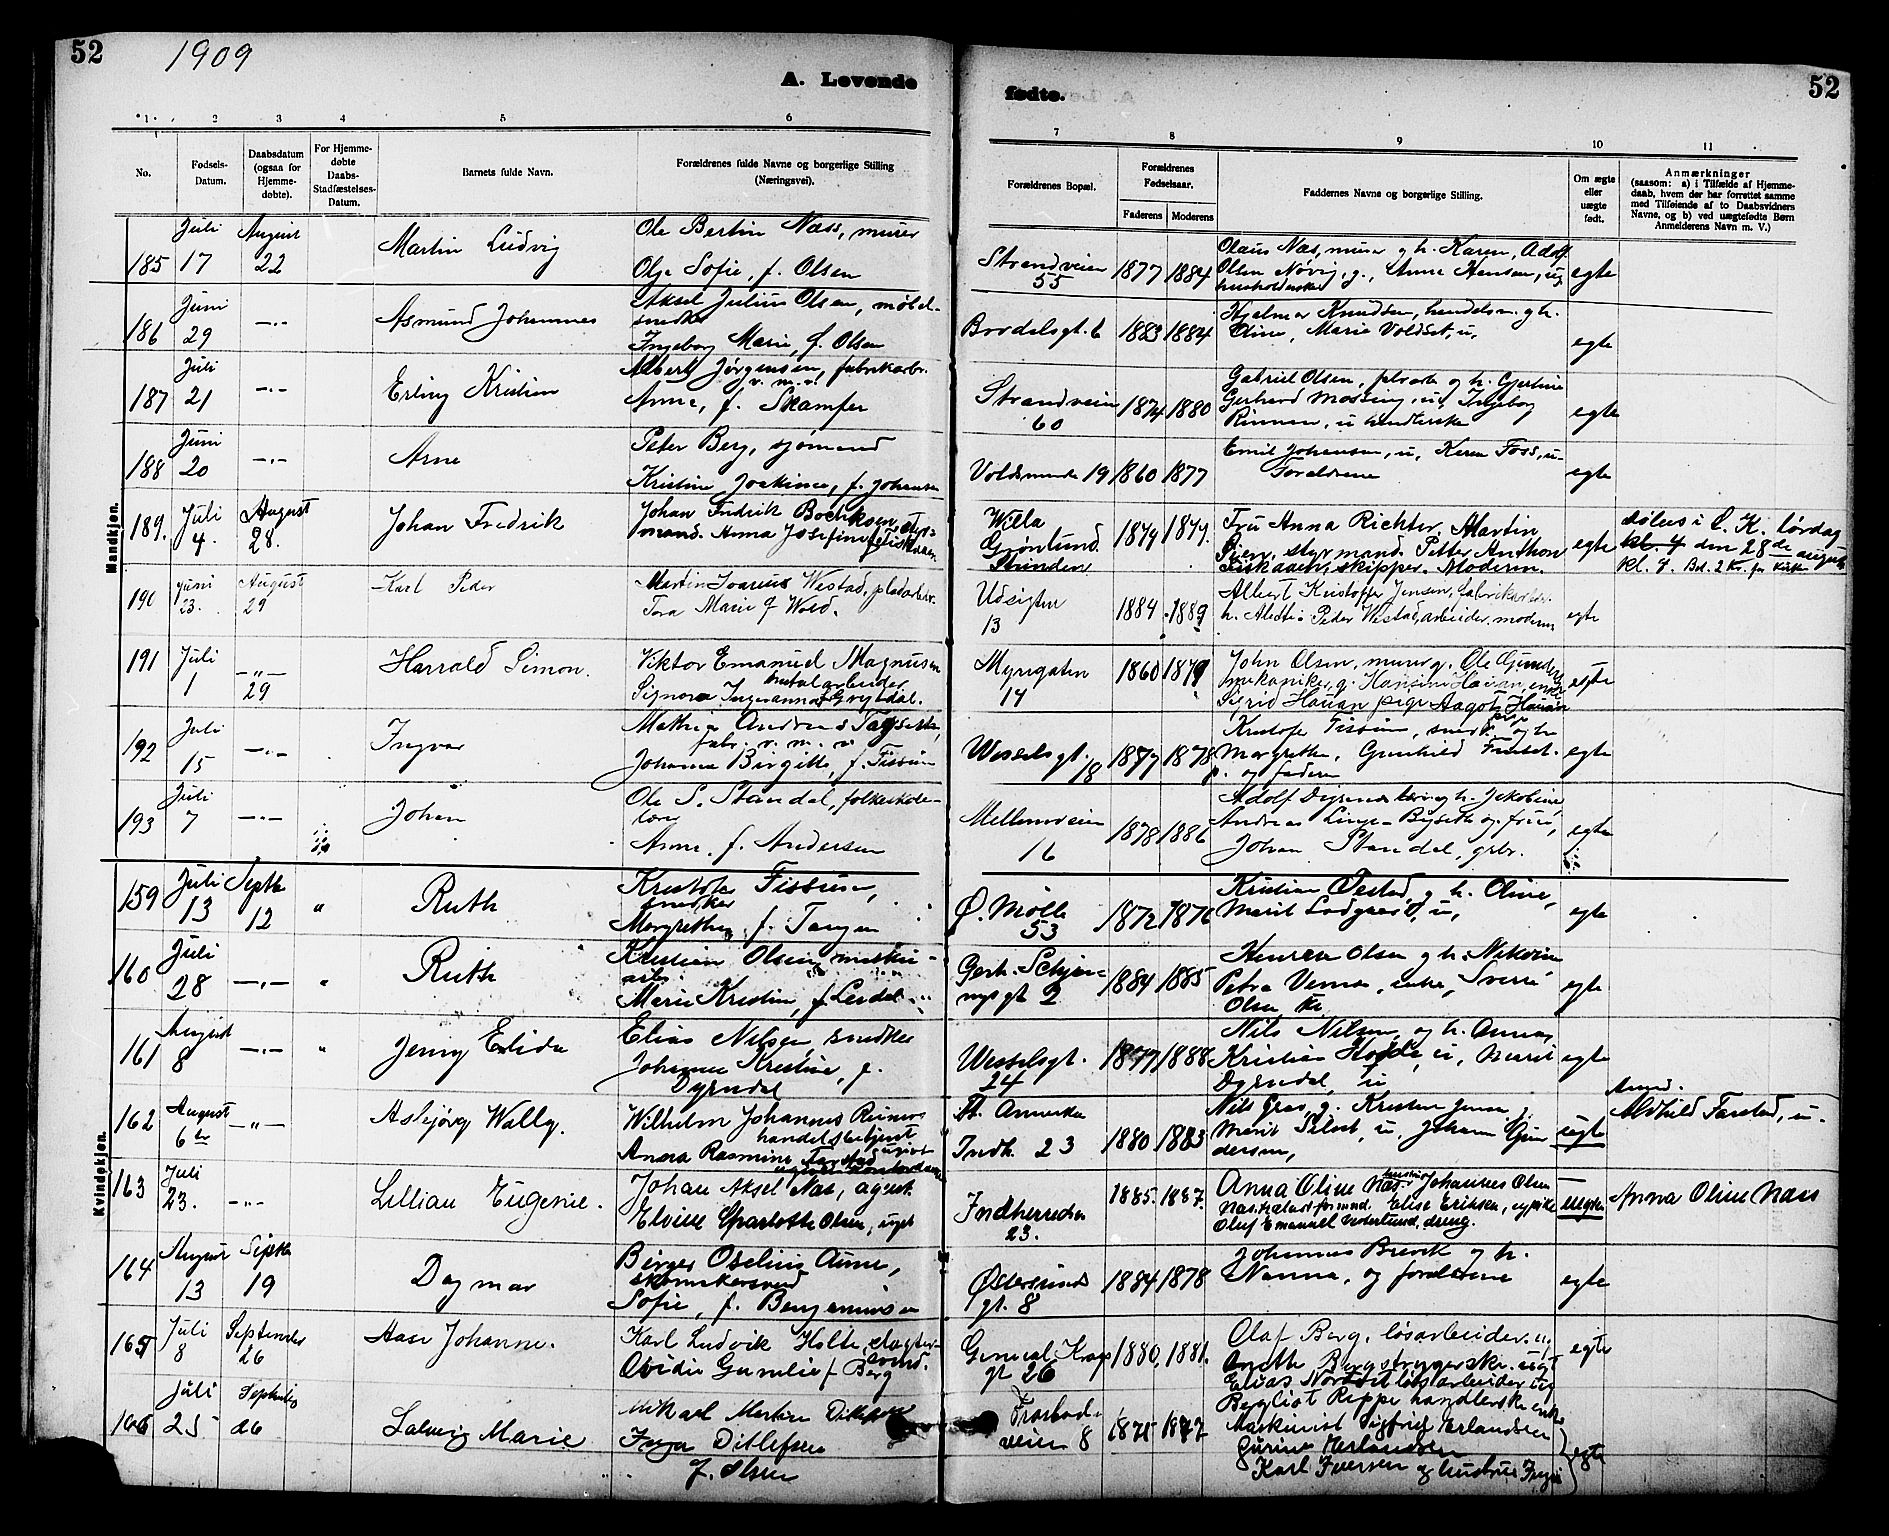 52
1909
A. Levende
fødte.
52
1
2
3
4
5
6
7
8
9
10
11
No.
Fødsels-
Datum.
Daabsdatum
(ogsaa for
Hjemme-
døbte).
For Hjemme-
døbte
Daabs-
Stadfæstelses-
Datum.
Barnets fulde Navn.
Forældrenes fulde Navne og borgerlige Stilling
(Næringsvei).
Forældrenes Bopæl.
Forældrenes
Fødselsaar.
Faderens
Moderens
Faddernes Navne og borgerlige Stilling.
Om ægte
eller
uægte
født.
Anmærkninger
(saasom: a) i Tilfælde af Hjemme-
daab, hvem der har forrettet samme
med Tilføiende af to Daabsvidners
Navne, og b) ved uægtefødte Børn
Anmelderens Navn m. V.)
Mandkjøn.
185
Juli
17
August
22
Martin Ludvig
Ole Bertin Næss, murer
Olge Sofie, f. Olsen
Strandveien
55
1877
1884
Olaus Næs, murer og h. Karen, Adolf
Olsen Novig, g., Anne Hansen, ug.
husholderske
egte
186
Juni
29
—"—
Asmund Johannes
Aksel Julius Olsen, møbel-
snedker
Ingeborg Marie, f. Olsen
1883
1884
Hjalmar Knudsen, handelsm. og h.
Oline, Marie Voldset, u.
egte
187
Juli
21
—"—
Erling Kristian
Albert Jørgensen, fabrikarb.
v. m. v.
Anna, f. Skamfer
Strandveien
60
1874
1880
Gabriel Olsen, og h. Gjertine
Gerhard Mossing, u, Ingeborg
Rinnan, u handlerske
egte
188
Juni
20
—"—
Arne
Peter Berg, sjømand
Kristine Joakime, f. Johansen
19
1860
1877
Emil Johansen, u, Karen Foss, u.
Forældrene
egte
189.
Juli
4.
August
28.
Johan Fredrik
Johan Fredrik Bodriksen, styr-
mand. Anna Josefine f. Fiskaaen
Willa
Grønlund
Strinden
1874
1877.
Fru Anna Richter, Martin
Sien, styrmand. Petter Anthon
Fiskaaen, skipper. Moderen.
egte
døbes i kl. 4 den 28de august
kl. 4. Bet. 2 Kr. for Kirke
190
Juni
23.
August
29
Karl Peder
Martin Ivarius Westad, pladearbeider.
Tora Marie f Wold.
Udsigten
13
1884
1889
Albert Kristoffer Jensen, fabrikarbr.
h. Aletti. Peder Westad, arbeider. moderen
egte
191
Juli
1
—"—
29
Harrald Simon.
Viktor Emanuel Magnusen
Signora Ingeranna Gryttdal.
Myrgaten
14
1860
1879
John Olsen, murer g. Ole Gundersen
mekaniker, g. Hansine Hauan, enke
Sigrid Hauan pige Aagot Hauan
pige
egte
192
Juli
15
—"—
Ingvar
fabr. v. m. v.
Johanna Birgitte, f. Fissum
Wesselsgt.
18
1877
1878
Kristofer Fissum, snedk. og h.
Margrethe, Gunhild
p. og faderen
egte
193
Juli
7
—"—
Johan
Ole S. Standal, folkeskole-
lærer
Anna, f. Andersen
Mellemveien
16
1878
1886
Adolf lærer og h. Jakobine,
Andreas og frue,
Johan Standal, grbr.
egte
Kvindekjøn.
159
Juli
13
Septbr
12
"
Ruth
Kristofer Fissum,
snedker
Margrethe, f. Tangen
Ø. Mølle
53
1872
1876
Kristian Øestad, og h. Oline,
Marit Lodgaard, u,
egte
160
Juli
28
—"—
"
Ruth
Kristian Olsen
Marie Kristine, f. Lerdal
Gerh. Schjøn-
nigs gt 2
1884
1885
Henrik Olsen og h.
Petra enke, Sverre
Olsen
egte
161
August
8
—"—
"
Jenny Elida
Elias Nilsen snedker
Johanna Kristine, f.
Dyrndal
Wesselsgt.
24
1877
1888
Nils Nilsen, og h. Anna,
Kristian u, Marit
Dyrndal, u
egte
162
August
6te
—"—
Asbjørg Wally.
Wilhelm Johannes Reiners
handelsbetjent
Anna Rasmine Farstad
Indh. 23
1880
1883
Nils Gras, g. Kristen
Marit u, Johan Gun
dersen,
uegte
Anm.
Aldhild Farstad, u.
163
Juli
23.
—"—
Lillian Eugenie.
Johan Aksel Næs, agent.
Elvine Charlotte Olsen, ugt
Indherreden
23.
1885.
1887.
Anna Oline Næs. Johannes Olsen
Næs. Elise Eriksen, ug pike
Oluf Emanuel Vederlund, dreng.
uegte
Anna Oline Næss
164
August
13
Septbr
19
Dagmar
Birger Oselius Aune,
skomakersvend
Sofie, f. Benjaminsen
Østersunds
gt. 8
1884
1878
Johannes Brevik og h.
Nanna, og forældrene
egte
165
Juli
8
September
26
Aase Johanne.
Karl Ludvik Holte, slagter-
svend.
Ovidie Gunelie f Berg
General Krags
gt 26
1880.
1881.
Olaf Berg, løsarbeider. u.
Anette Berg strygerske. ugt
Elias Nordset løsarbeider ug
Bergliot Rippe handlerske enke
egte
166
Juli
25
September
26
Solveig Marie
Mikael Martin Ditlefsen
Inga Ditlefsen
f. Olsen
Frostad-
veien 8
1875
1877
Maskinist Sigfrid Erlandsen
Gurine Erlandsen
Karl Iversen og hustrue Inga
egte